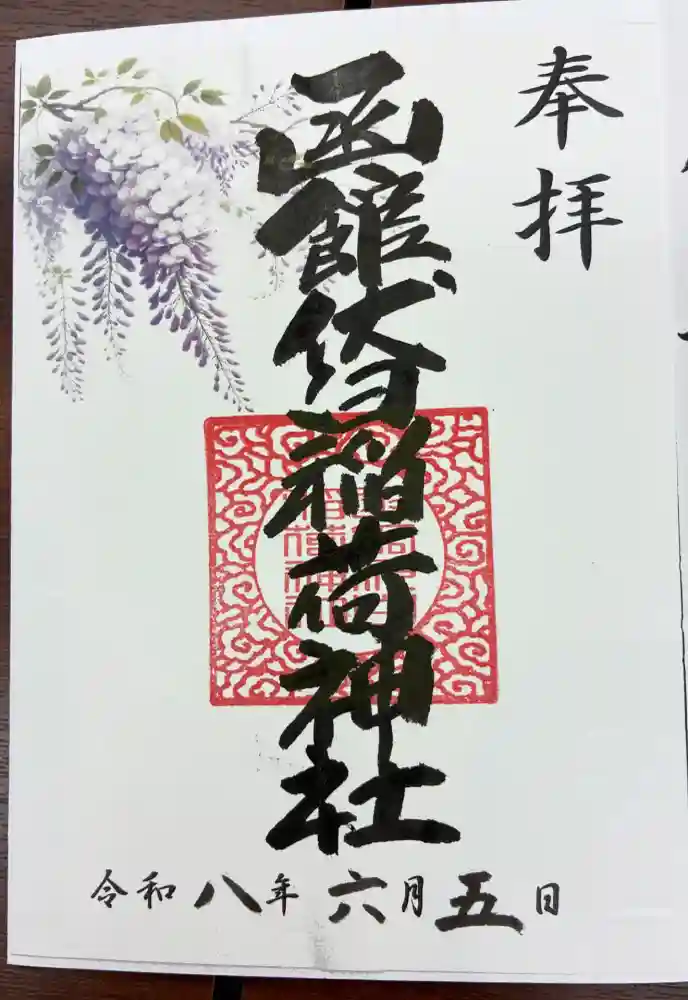 奉拝
函館伏白稲荷神社
令和八年六月五日